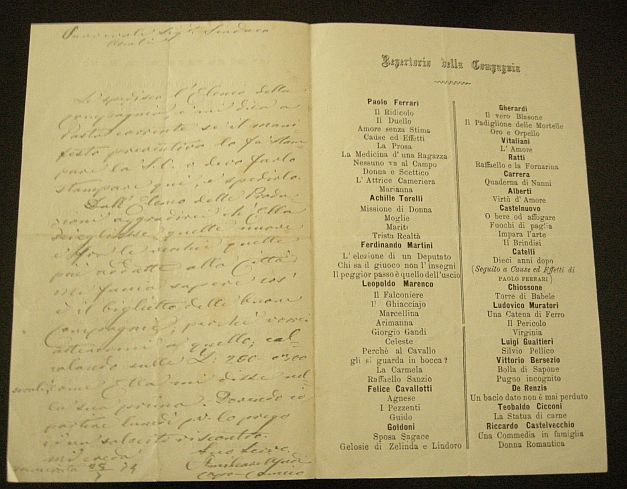 Le spedisco l'Elenco della
compagnia, e mi dica a
se il mani
festo preventivo lo fa stam
pare la S.V. o devo farlo
stampare qui e spedirlo.
Dall'Elenco delle Produ
zioni
quelle nuove
quelle
più adatte alla Città
mi faccia sapere
è il biglietto delle buone
compagnie, perchè
a quello, cal
colando sulle
Ella mi disse nel
la sua prima. Dovendo io
partire lunedì prego
sollecito riscontro
mi creda
Repertorio della Compagnia
Paolo Ferrari
Il Ridicolo
Il Duello
Amore senza Stima
Cause ed Effetti
La Prosa
La Medicina d'una Ragazza
Nessuno va al Campo
Donna e Scettico
L'Attrice Cameriera
Marianna
Achille Torelli
Missione di Donna
Moglie
Mariti
Trista Realtà
Ferdinando Martini
L'elezione di un Deputato
Chi sa il giuoco non l'insegni
Il peggior passo è quello dell'uscio
Leopoldo Marenco
Il Falconiere
Il Ghiacciajo
Marcellina
Arimanna
Giorgio Gandi
Celeste
Perchè al Cavallo
gli si guarda in bocca?
La Carmela
Raffaello Sanzio
Felice Cavallotti
Agnese
I Pezzenti
Guido
Goldoni
Sposa Sagace
Gelosie di Zelinda e Lindoro
Gherardi
Il vero Blasone
Il Padiglione delle Mortelle
Oro e Orpello
Vitaliani
L'Amore
Ratti
Raffaello e la Fornarina
Carrera
Quaderna di Nanni
Alberti
Virtù d'Amore
Castelnuovo
O bere od affogare
Fuochi di paglia
Impara l'arte
Il Brindisi
Catelli
Dieci anni dopo
(Seguito a Cause ed Effetti di
PAOLO FERRARI)
Chiossone
Torre di Babele
Ludovico Muratori
Una Catena di Ferro
Il Pericolo
Virginia
Luigi Gualtieri
Silvio Pellico
Vittorio Bersezio
Bolla di Sapone
Pugno incognito
De Renzis
Un bacio dato non è mai perduto
Teobaldo Cicconi
La Statua di carne
Riccardo Castelvecchio
Una Commedia in famiglia
Donna Romantica